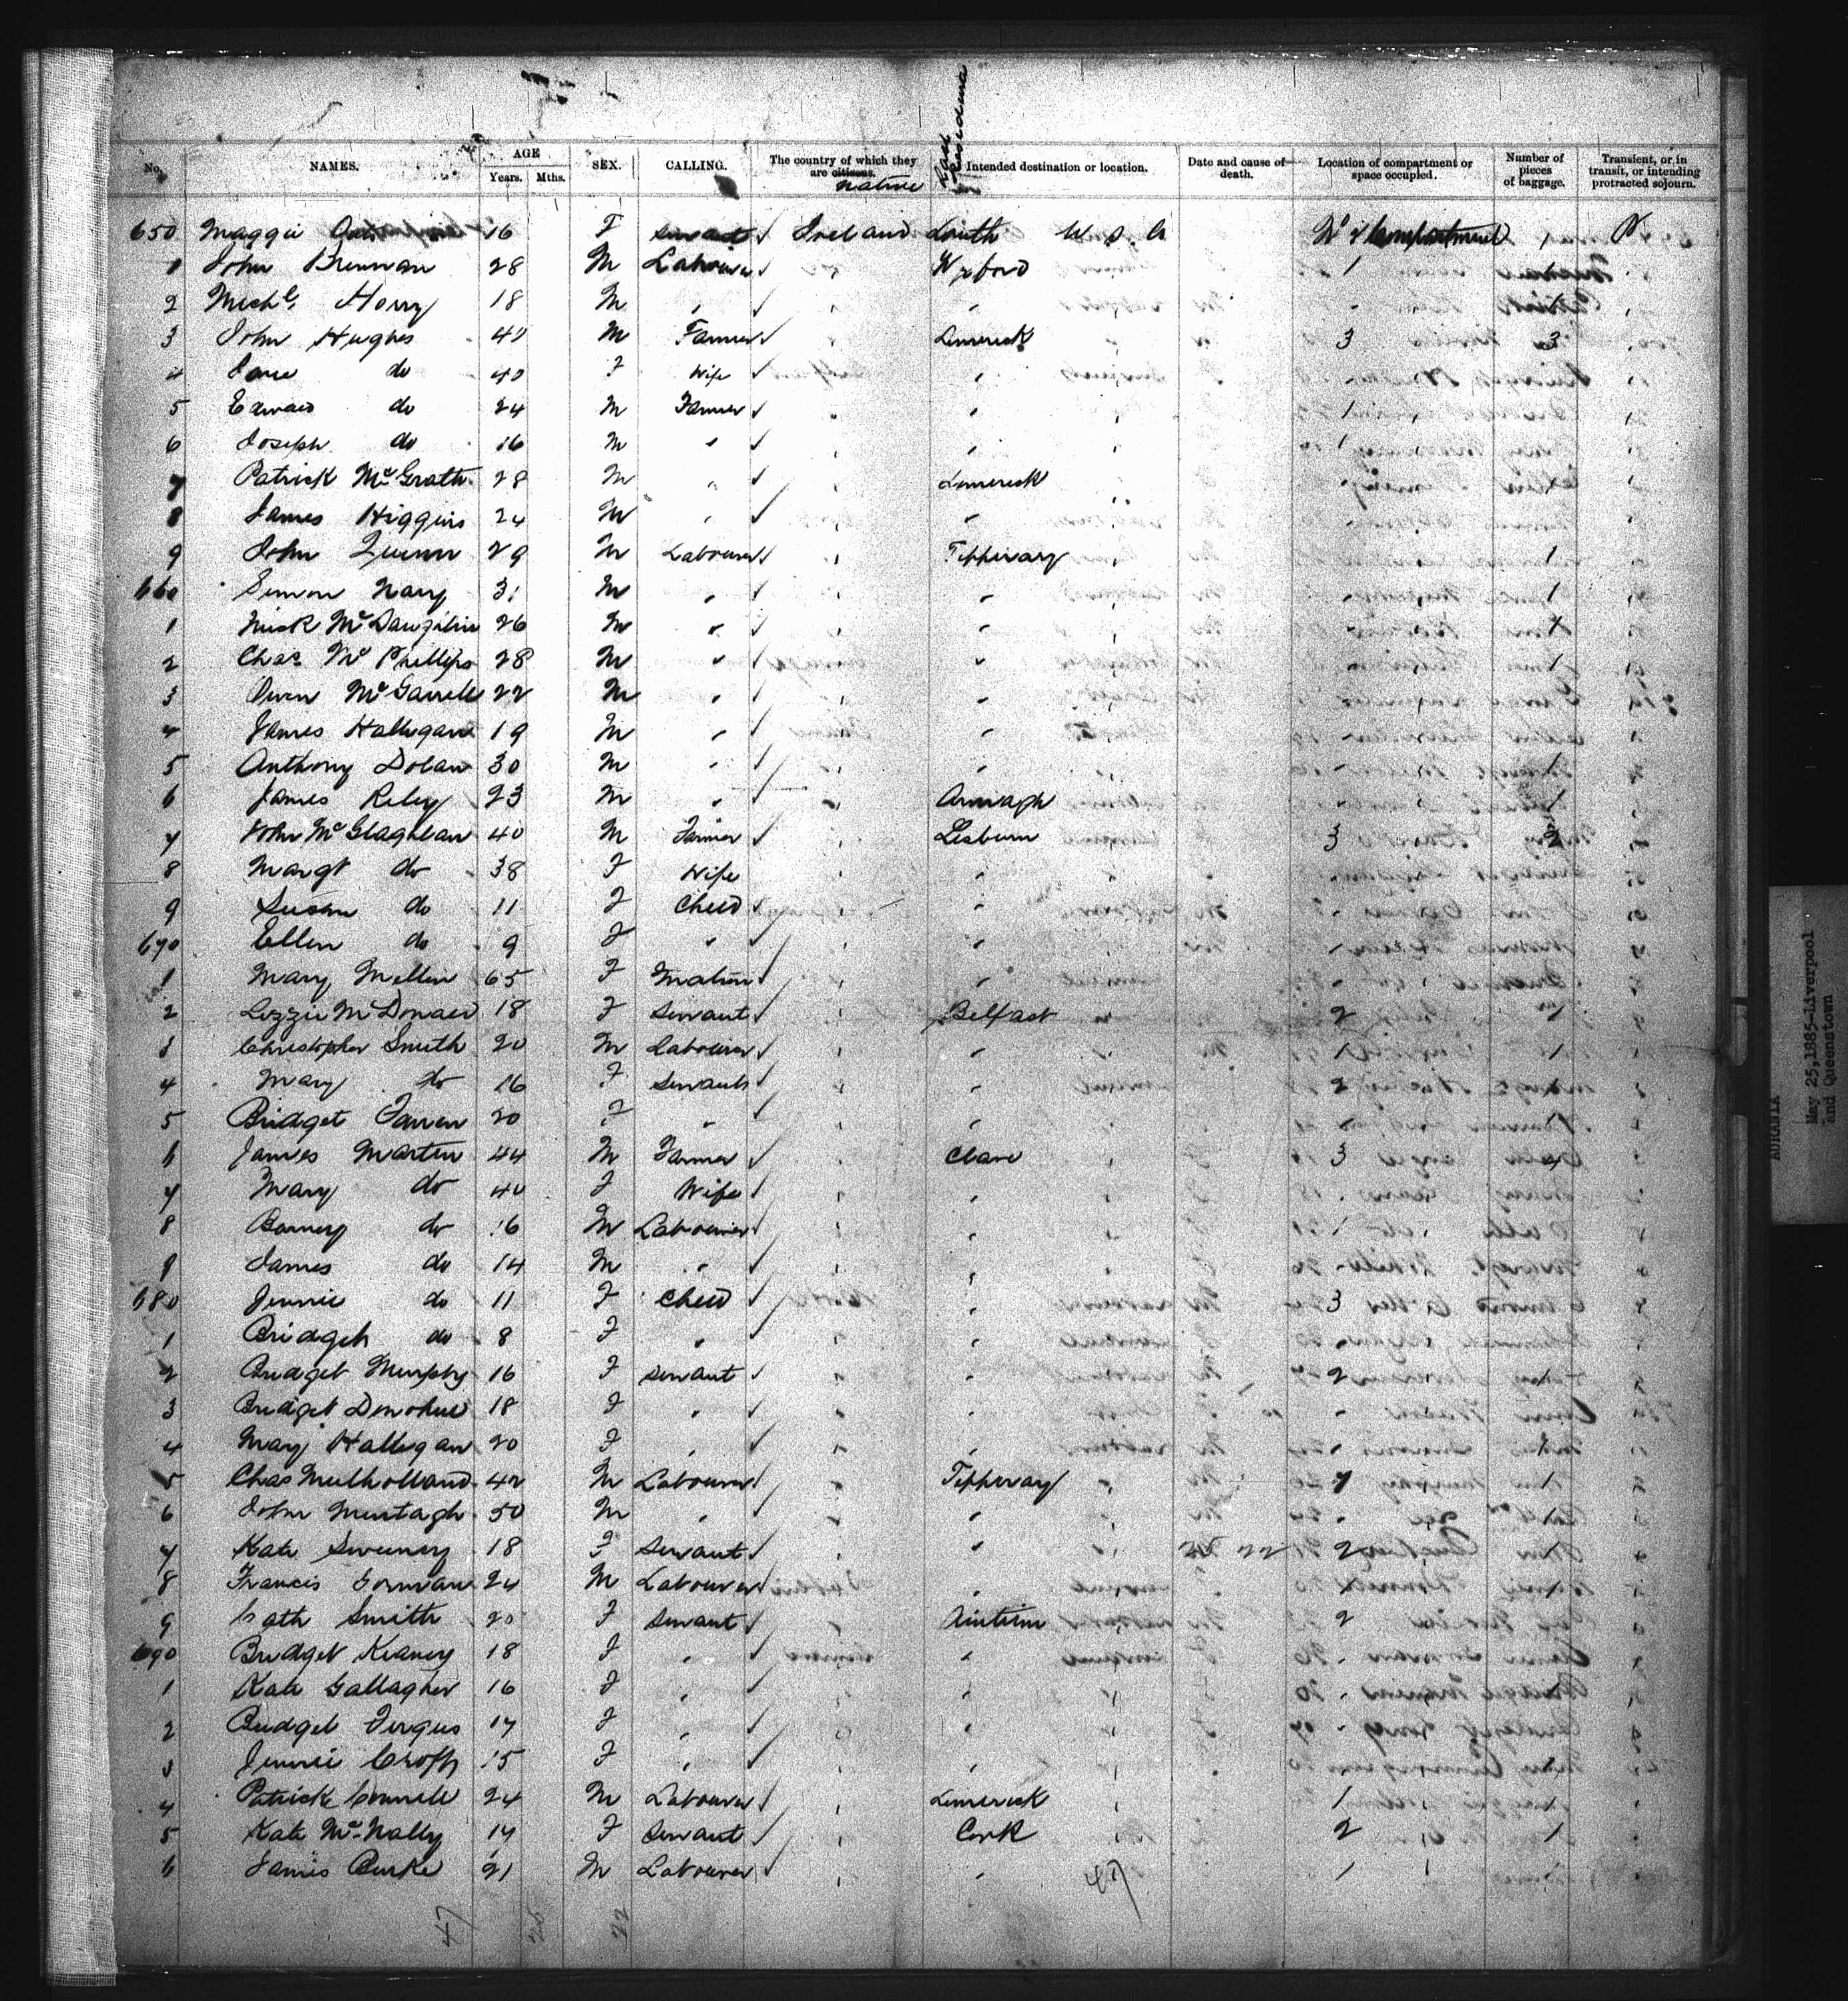 Last Residence
No. NAMES. AGE Years. Mths. SEX. CALLING. The country of which they are citizens. native Intended destination or location. Date and cause of death. Location of compartment or space occupied. Number of pieces of baggage. Transient, or in transit, or intending protracted sojourn.
650 Maggie 16 F Servant Ireland Louth U.S.A Compartment 1
1 John Brennan 28 M Labourer " Wxford 1 1
2 Michl 18 M " " " 1
3 John Hughes 40 M Farmer " Limerick 3 3
4 Jane do 40 F Wife " "
5 Edward do 24 M Farmer " " 1
6 Joseph do 16 M " " " 1
7 Patrick McGrath 28 M " " Limerick
8 James Higgins 24 M " " "
9 John Quinn 29 M Labourer " Tipperary 1
660 Simon Nary 31 M " " " 1
1 Mick McLaughlin 26 M " " " 1
2 Chas McPhillips 28 M " " " 1
3 Owen McGarrell 22 M " " "
4 James Halligan 19 M " " "
5 Anthony Dolan 30 M " " " 1
6 James Riley 23 M " " Armagh 1
7 John McGlaghlan 40 M Farmer " Lisburn 3
8 Margt do 38 F Wife "
9 Susan do 11 F Child " "
670 Ellen do 9 F " " "
1 Mary Mellen 65 F Matron " "
2 Lizzie McDonald 18 F Servant " Belfast 2 1
3 Christopher Smith 20 M Labourer " " 1 1
4 Mary do 16 F Servant " " 2
5 Bridget Farren 20 F " " " 1
6 James Martin 44 M Farmer " Clare 3 4
7 Mary do 40 F Wife " "
8 Barney do 16 M Labourer " " 1
9 James do 14 M " " "
680 Jennie do 11 F Child " " 3
1 Bridget do 8 F " " "
2 Bridget Murphy 16 F Servant " " 2 1
3 Bridget Donohue 18 F " " "
4 Mary Halligan 20 F " " " 1
5 Chas Mulholland 42 M Labourer " Tipperary 1 1
6 John Murtagh 50 M " " " 1
7 Kate Sweeney 18 F Servant " " 25 22 2 1
8 Francis Gorman 24 M Labourer " " 1
9 Cath Smith 20 F Servant " Antrim 2
690 Bridget Keaney 18 F " " "
1 Kate Gallagher 16 F " " "
2 Bridget Fergus 17 F " " "
3 Jennie Croft 15 F " " " 1
4 Patrick Connell 24 M Labourer " Limerick 1 1
5 Kate McNally 17 F Servant " Cork 2 1
6 James Burke 21 M Labourer " " 1 1
47
47 25 22
AURANIA
May 25, 1885-Liverpool
and Queenstown